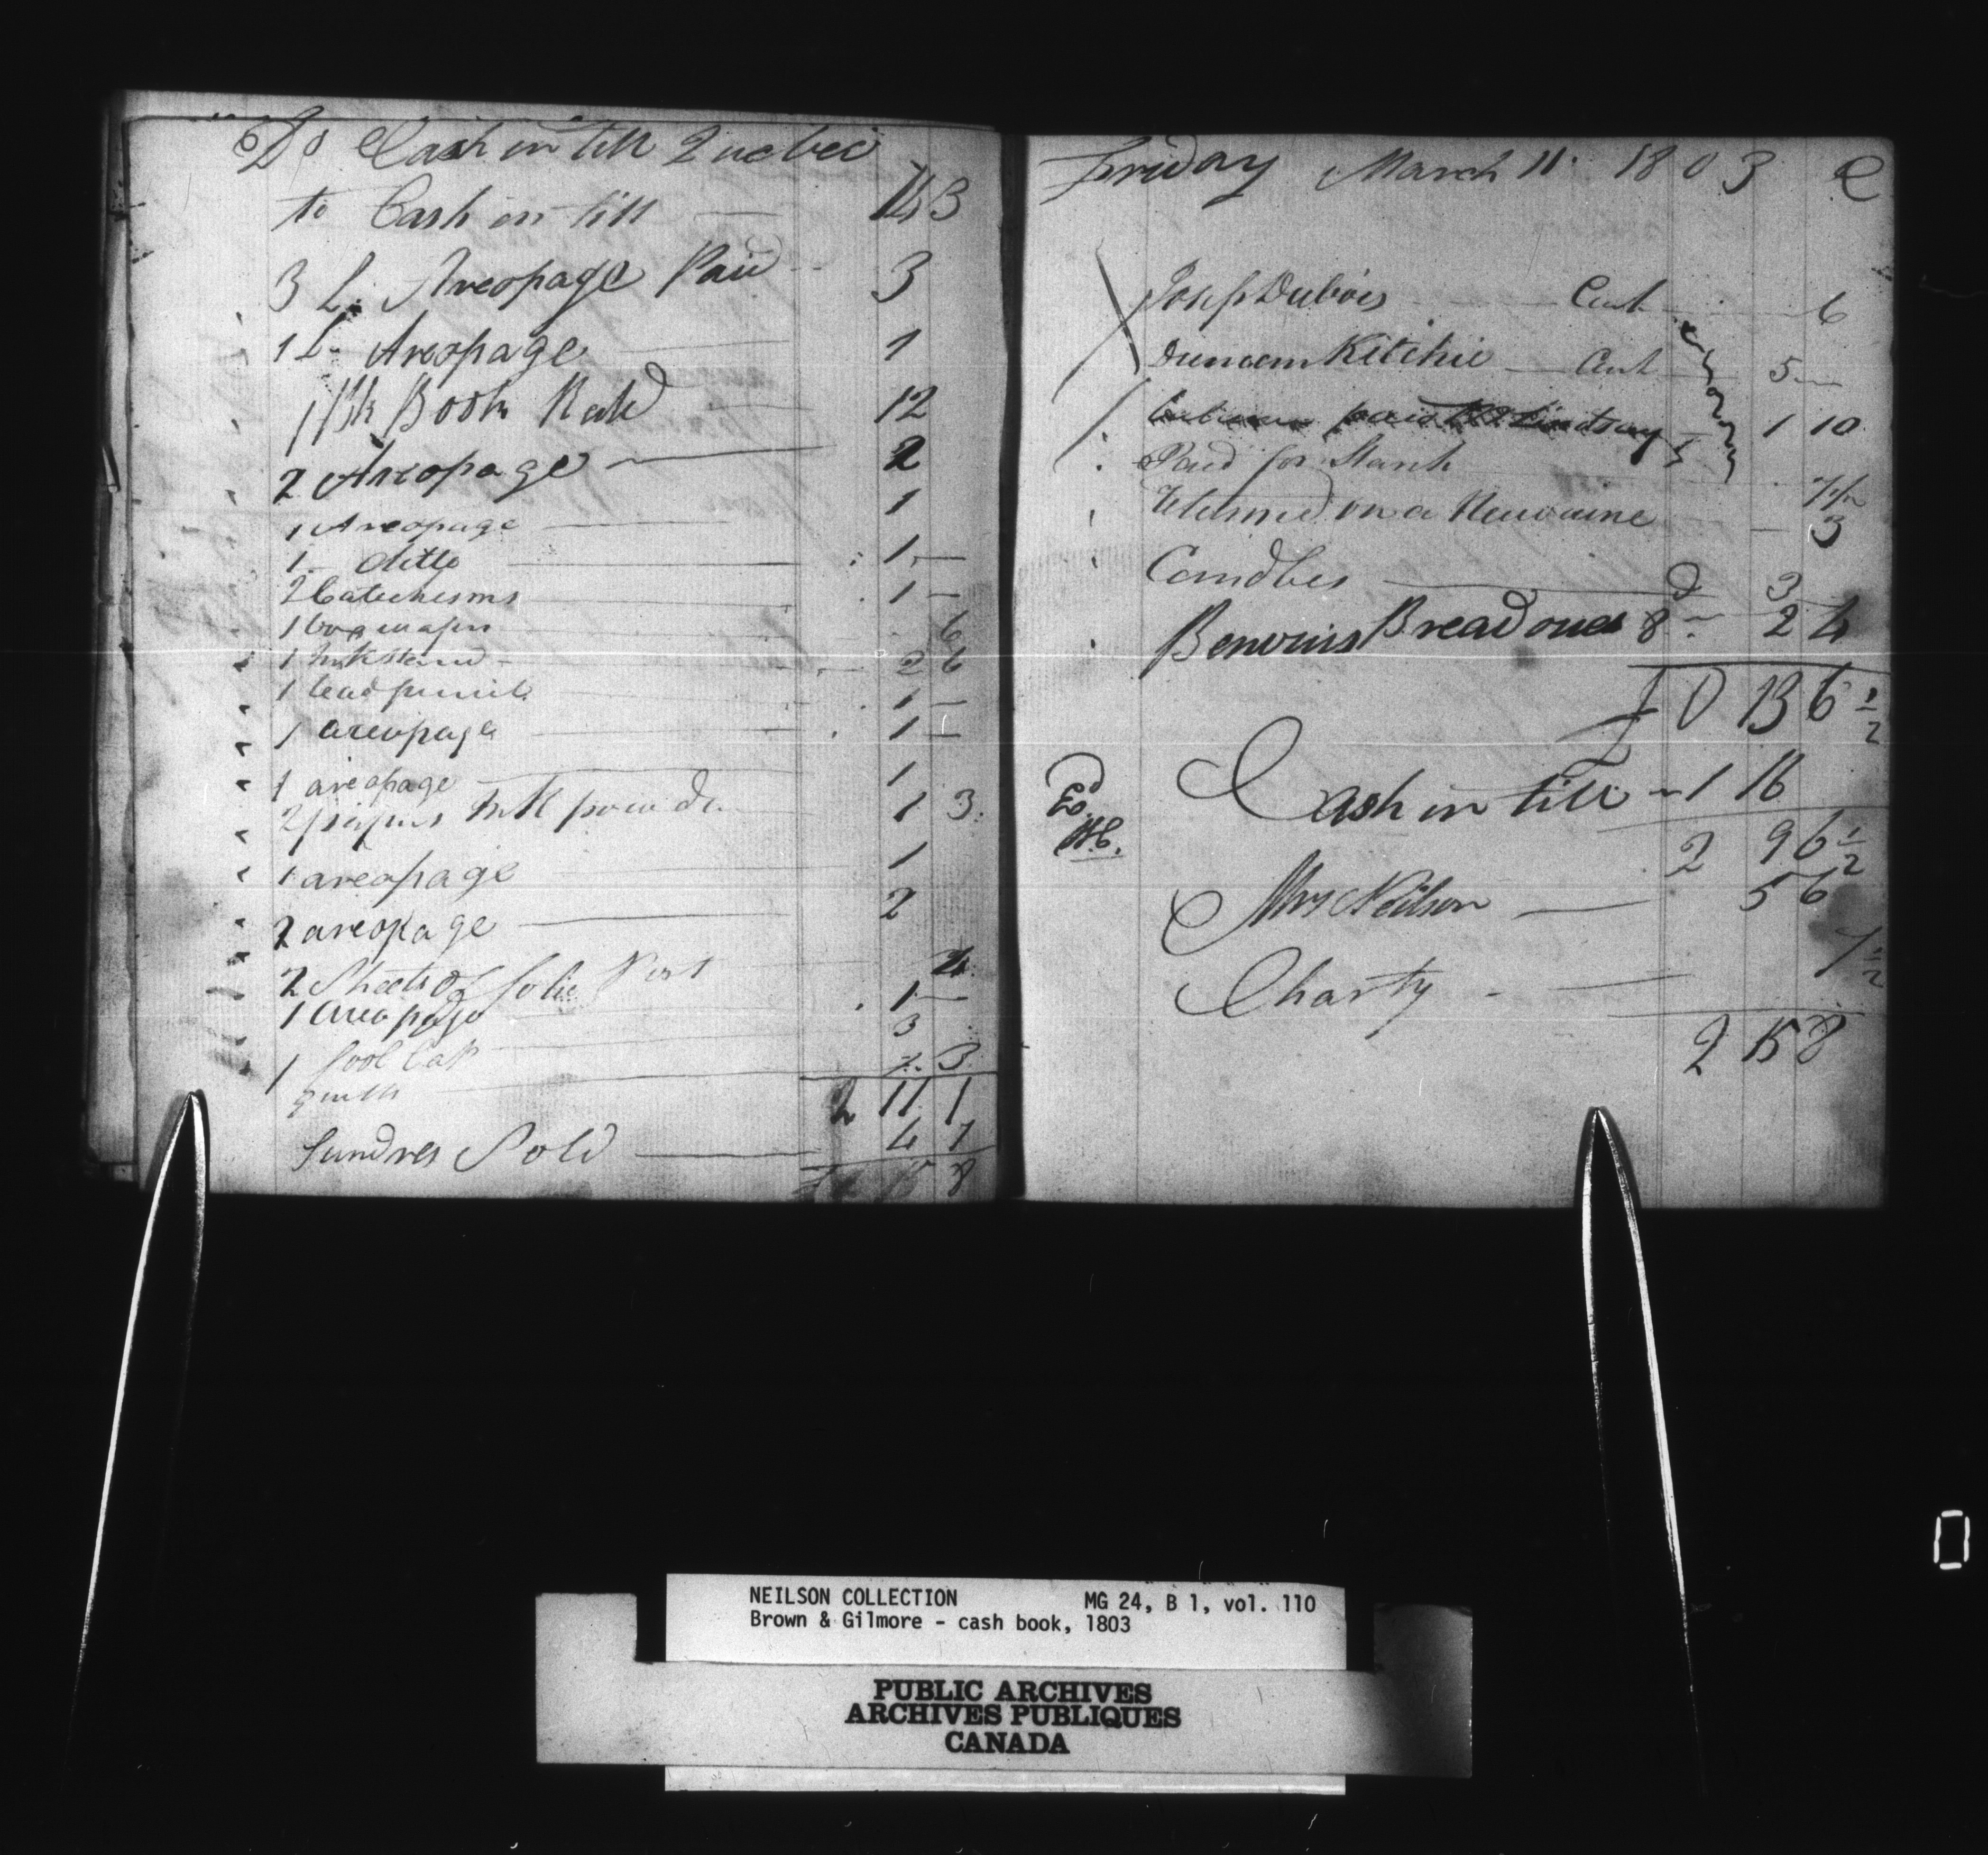 Do Cash in till Quebec
to Cash in till 14 3
3 L. Areopage Paid 3
1 L. Areopage 1
1 Bk Book Rul'd 12
2 Areopage 2
1 Areopage 1
1 ditto 1 —
2 Catechisms 1 —
1 6
1 Inkstand 2 6
1 lead pencil 1 —
1 areopage 1 —
1 areopage 1
2 papers Ink powder 1 3
1 areopage 1
2 areopage 2
2 Sheets of folio Post 4
1 areopage 1 —
1 fool Cap 3
3
2 11 1
Sundres Sold 4 7
15 8
Friday March 11 1803 C
Josep Dubois Cash 6
Duncan Ritchie Cash 5 —
paid Lindsay 1 10
Paid for Starch 7 1/2
Returned on a 3
Candles 3
Bread oued 8 2 4
£ 0 13 6 1/2
Cash in till 1 16
2 9 6 1/2
Mrs Neilson 5 6
Charty 7 1/2
2 15 8
NEILSON COLLECTION MG 24, B 1, vol. 110
Brown & Gilmore - cash book, 1803
PUBLIC ARCHIVES
ARCHIVES PUBLIQUES
CANADA